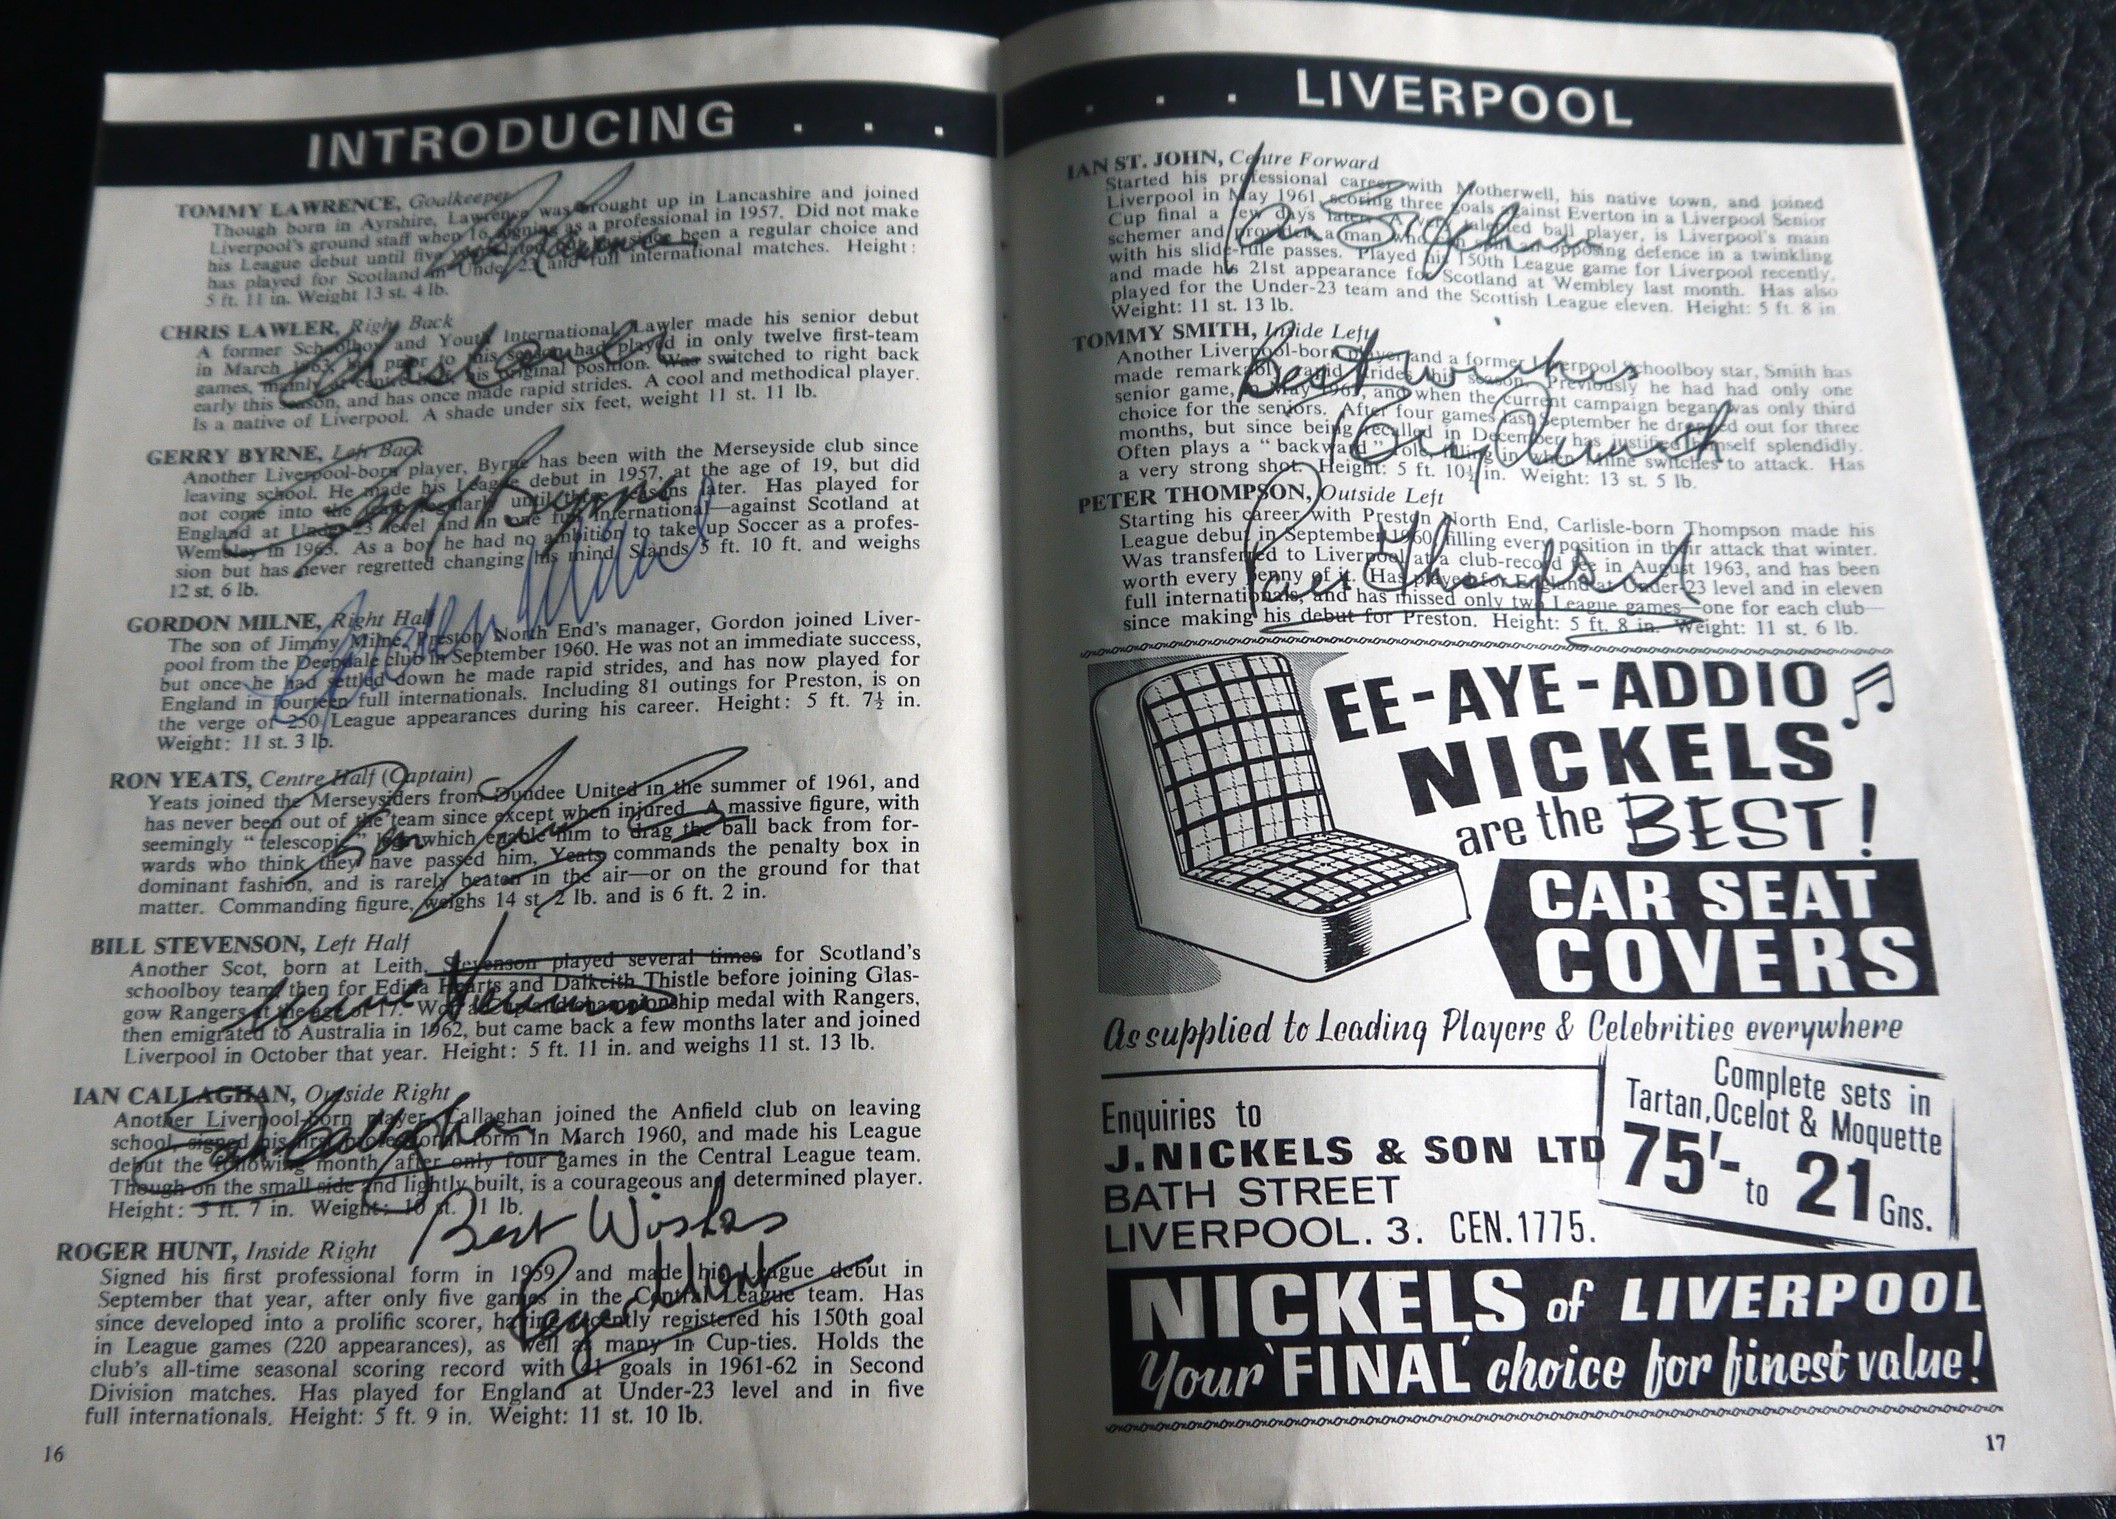 INTRODUCING . . .
TOMMY LAWRENCE, Goalkeeper
Though born in Ayrshire, Lawrence was brought up in Lancashire and joined
Liverpool's ground staff when 16, signing as a professional in 1957. Did not make
his League debut until five been a regular choice and
has played for Scotland in Under-23 and full international matches. Height:
5 ft. 11 in. Weight 13 st. 4 lb.
CHRIS LAWLER, Right Back
A former Schoolboy and Youth International, Lawler made his senior debut
in March 1963, but prior to this season had played in only twelve first-team
games, mainly at centre his original position. Was switched to right back
early this season, and has once made rapid strides. A cool and methodical player.
Is a native of Liverpool. A shade under six feet, weight 11 st. 11 lb.
Chris Lawler
GERRY BYRNE, Left Back
Another Liverpool-born player, Byrne has been with the Merseyside club since
leaving school. He made his League debut in 1957, at the age of 19, but did
not come into the team regularly until three seasons later. Has played for
England at Under-23 level and in one full international—against Scotland at
Wembley in 1963. As a boy he had no ambition to take up Soccer as a profes-
sion but has never regretted changing his mind. Stands 5 ft. 10 ft. and weighs
12 st. 6 lb.
Gerry Byrne
GORDON MILNE, Right Half
The son of Jimmy Milne, Preston North End's manager, Gordon joined Liver-
pool from the Deepdale club in September 1960. He was not an immediate success,
but once he had settled down he made rapid strides, and has now played for
England in fourteen full internationals. Including 81 outings for Preston, is on
the verge of 250 League appearances during his career. Height: 5 ft. 7½ in.
Weight: 11 st. 3 lb.
Gordon Milne
RON YEATS, Centre Half (Captain)
Yeats joined the Merseysiders from Dundee United in the summer of 1961, and
has never been out of the team since except when injured. A massive figure, with
seemingly "telescopic" legs which enable him to drag the ball back from for-
wards who think they have passed him, Yeats commands the penalty box in
dominant fashion, and is rarely beaten in the air—or on the ground for that
matter. Commanding figure, weighs 14 st. 2 lb. and is 6 ft. 2 in.
Ron Yeats
BILL STEVENSON, Left Half
Another Scot, born at Leith, Stevenson played several times for Scotland's
schoolboy team, then for Edina Hearts and Dalkeith Thistle before joining Glas-
gow Rangers at the age of 17. Won a Cup and championship medal with Rangers,
then emigrated to Australia in 1962, but came back a few months later and joined
Liverpool in October that year. Height: 5 ft. 11 in. and weighs 11 st. 13 lb.
IAN CALLAGHAN, Outside Right
Another Liverpool-born player, Callaghan joined the Anfield club on leaving
school, signed his first professional form in March 1960, and made his League
debut the following month, after only four games in the Central League team.
Though on the small side and lightly built, is a courageous and determined player.
Height: 5 ft. 7 in. Weight: 10 st. 1 lb.
Ian Callaghan
Best Wishes
Roger Hunt
ROGER HUNT, Inside Right
Signed his first professional form in 1959 and made his League debut in
September that year, after only five games in the Central League team. Has
since developed into a prolific scorer, having recently registered his 150th goal
in League games (220 appearances), as well as many in Cup-ties. Holds the
club's all-time seasonal scoring record with 41 goals in 1961-62 in Second
Division matches. Has played for England at Under-23 level and in five
full internationals. Height: 5 ft. 9 in. Weight: 11 st. 10 lb.
16
. . . LIVERPOOL
IAN ST. JOHN, Centre Forward
Started his professional career with Motherwell, his native town, and joined
Liverpool in May 1961, scoring three goals against Everton in a Liverpool Senior
Cup final a few days later. A very talented ball player, is Liverpool's main
schemer and provider, a man who can opposing defence in a twinkling
with his slide-rule passes. Played his 150th League game for Liverpool recently,
and made his 21st appearance for Scotland at Wembley last month. Has also
played for the Under-23 team and the Scottish League eleven. Height: 5 ft. 8 in.
Weight: 11 st. 13 lb.
Ian St John
TOMMY SMITH, Inside Left
Another Liverpool-born player and a former Liverpool Schoolboy star, Smith has
made remarkably rapid strides this season. Previously he had had only one
senior game, May 1963, and when the current campaign began was only third
choice for the seniors. After four games last September he dropped out for three
months, but since being recalled in December has justified himself splendidly.
Often plays a "backward" role, filling in when Milne switches to attack. Has
a very strong shot. Height: 5 ft. 10½ in. Weight: 13 st. 5 lb.
Best wishes
PETER THOMPSON, Outside Left
Starting his career with Preston North End, Carlisle-born Thompson made his
League debut in September 1960, filling every position in their attack that winter.
Was transferred to Liverpool at a club-record fee in August 1963, and has been
worth every penny of it. Has played for England at Under-23 level and in eleven
full internationals, and has missed only two League games—one for each club—
since making his debut for Preston. Height: 5 ft. 8 in. Weight: 11 st. 6 lb.
Peter Thompson
EE-AYE-ADDIO
NICKELS
are the BEST!
CAR SEAT
COVERS
As supplied to Leading Players & Celebrities everywhere
Enquiries to
J. NICKELS & SON LTD
BATH STREET
LIVERPOOL. 3. CEN. 1775.
Complete sets in
Tartan, Ocelot & Moquette
75'- to 21 Gns.
NICKELS of LIVERPOOL
Your 'FINAL' choice for finest value!
17